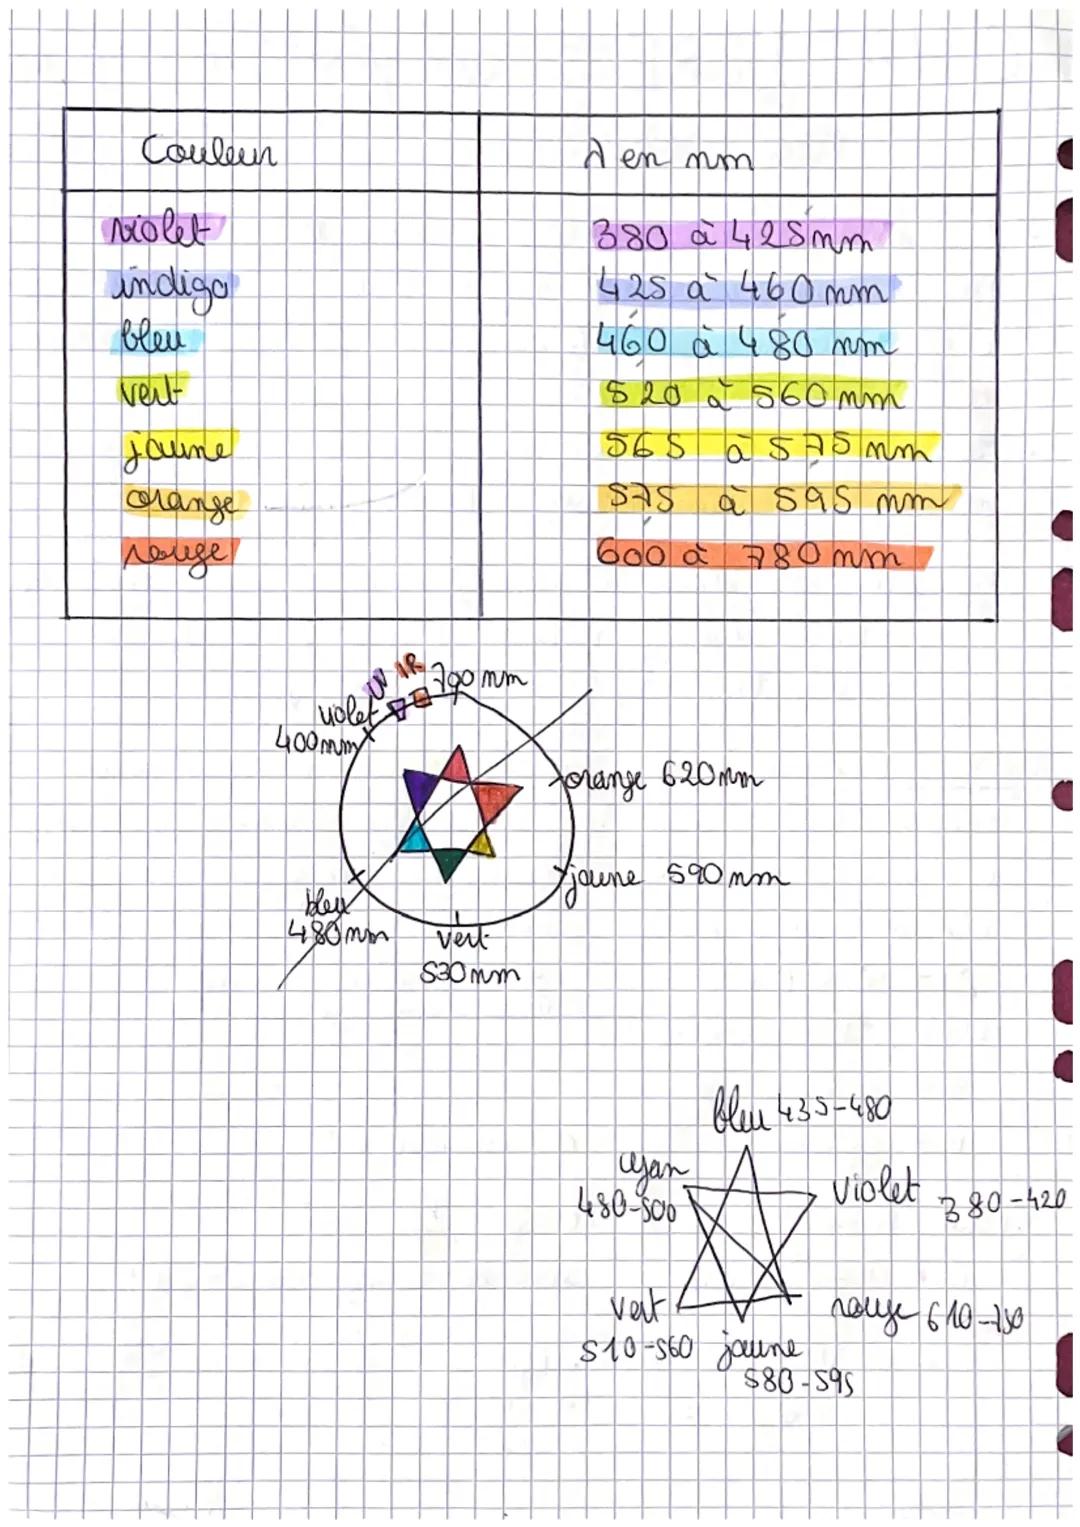 Couleur λ en nm
violet 380 à 425 nm
indigo 425 à 460 nm
bleu 460 à 480 nm
vert 520 à 560 nm
jaune 565 à 575 nm
orange 575 à 595 nm
rouge 600 à 780 nm
UV IR 700 nm
violet
400nm
orange 620nm
jaune 590nm
bleu
480nm
vert
530nm
bleu 435-480
cyan
480-500
violet 380-420
vert
510-560
rouge 610-750
jaune
580-595